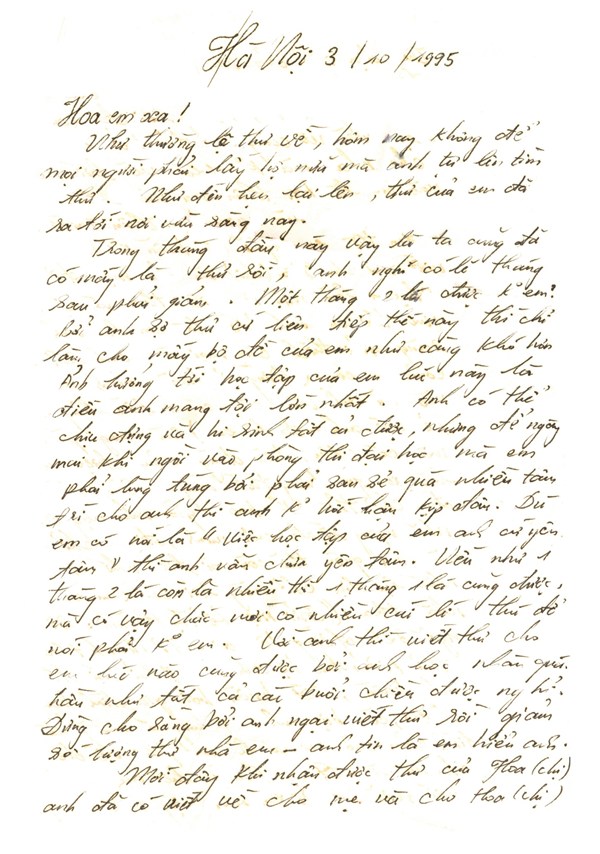 Hà Nội 3/10/1995
Hoa em xa!
Như thường lệ thư về, hôm nay không để
mọi người phải lấy hộ nữa mà anh tự lên tìm
thư. Như đến hẹn lại lên, thư của em đã
ra tới nơi vào sáng nay.
Trong tháng đầu này vậy là ta cũng đã
có mấy lá thư rồi, anh nghĩ có lẽ tháng
sau phải giảm. Một tháng 2 lá được k° em?
Bởi anh sợ thư cứ liên tiếp thế này thì chỉ
làm cho mấy bộ đề của em như càng khó hơn
Ảnh hưởng tới học tập của em lúc này là
điều anh mang tội lớn nhất. Anh có thể
chịu đựng và hi sinh tất cả được, nhưng để ngày
mai khi ngồi vào phòng thi đại học mà em
phải lúng túng bởi phải san sẻ quá nhiều tâm
trí cho anh thì anh k° hối hận kịp đâu. Dù
em có nói là "việc học tập của em anh cứ yên
tâm" thì anh vẫn chưa yên tâm. Nếu như 1
tháng 2 lá còn là nhiều thì 1 tháng 1 lá cũng được,
mà có vậy chắc mới có nhiều cái li thú để
nói phải k° em. Với anh thì viết thư cho
em lúc nào cũng được bởi anh học nhàn quá.
hầu như tất cả các buổi chiều được nghỉ.
Đừng cho rằng bởi anh ngại viết thư rồi giảm
số lượng thư nha em - anh tin là em hiểu anh.
Mới đây khi nhận được thư của Hoa (chị)
anh đã có viết về cho mẹ và cho Hoa (chị)